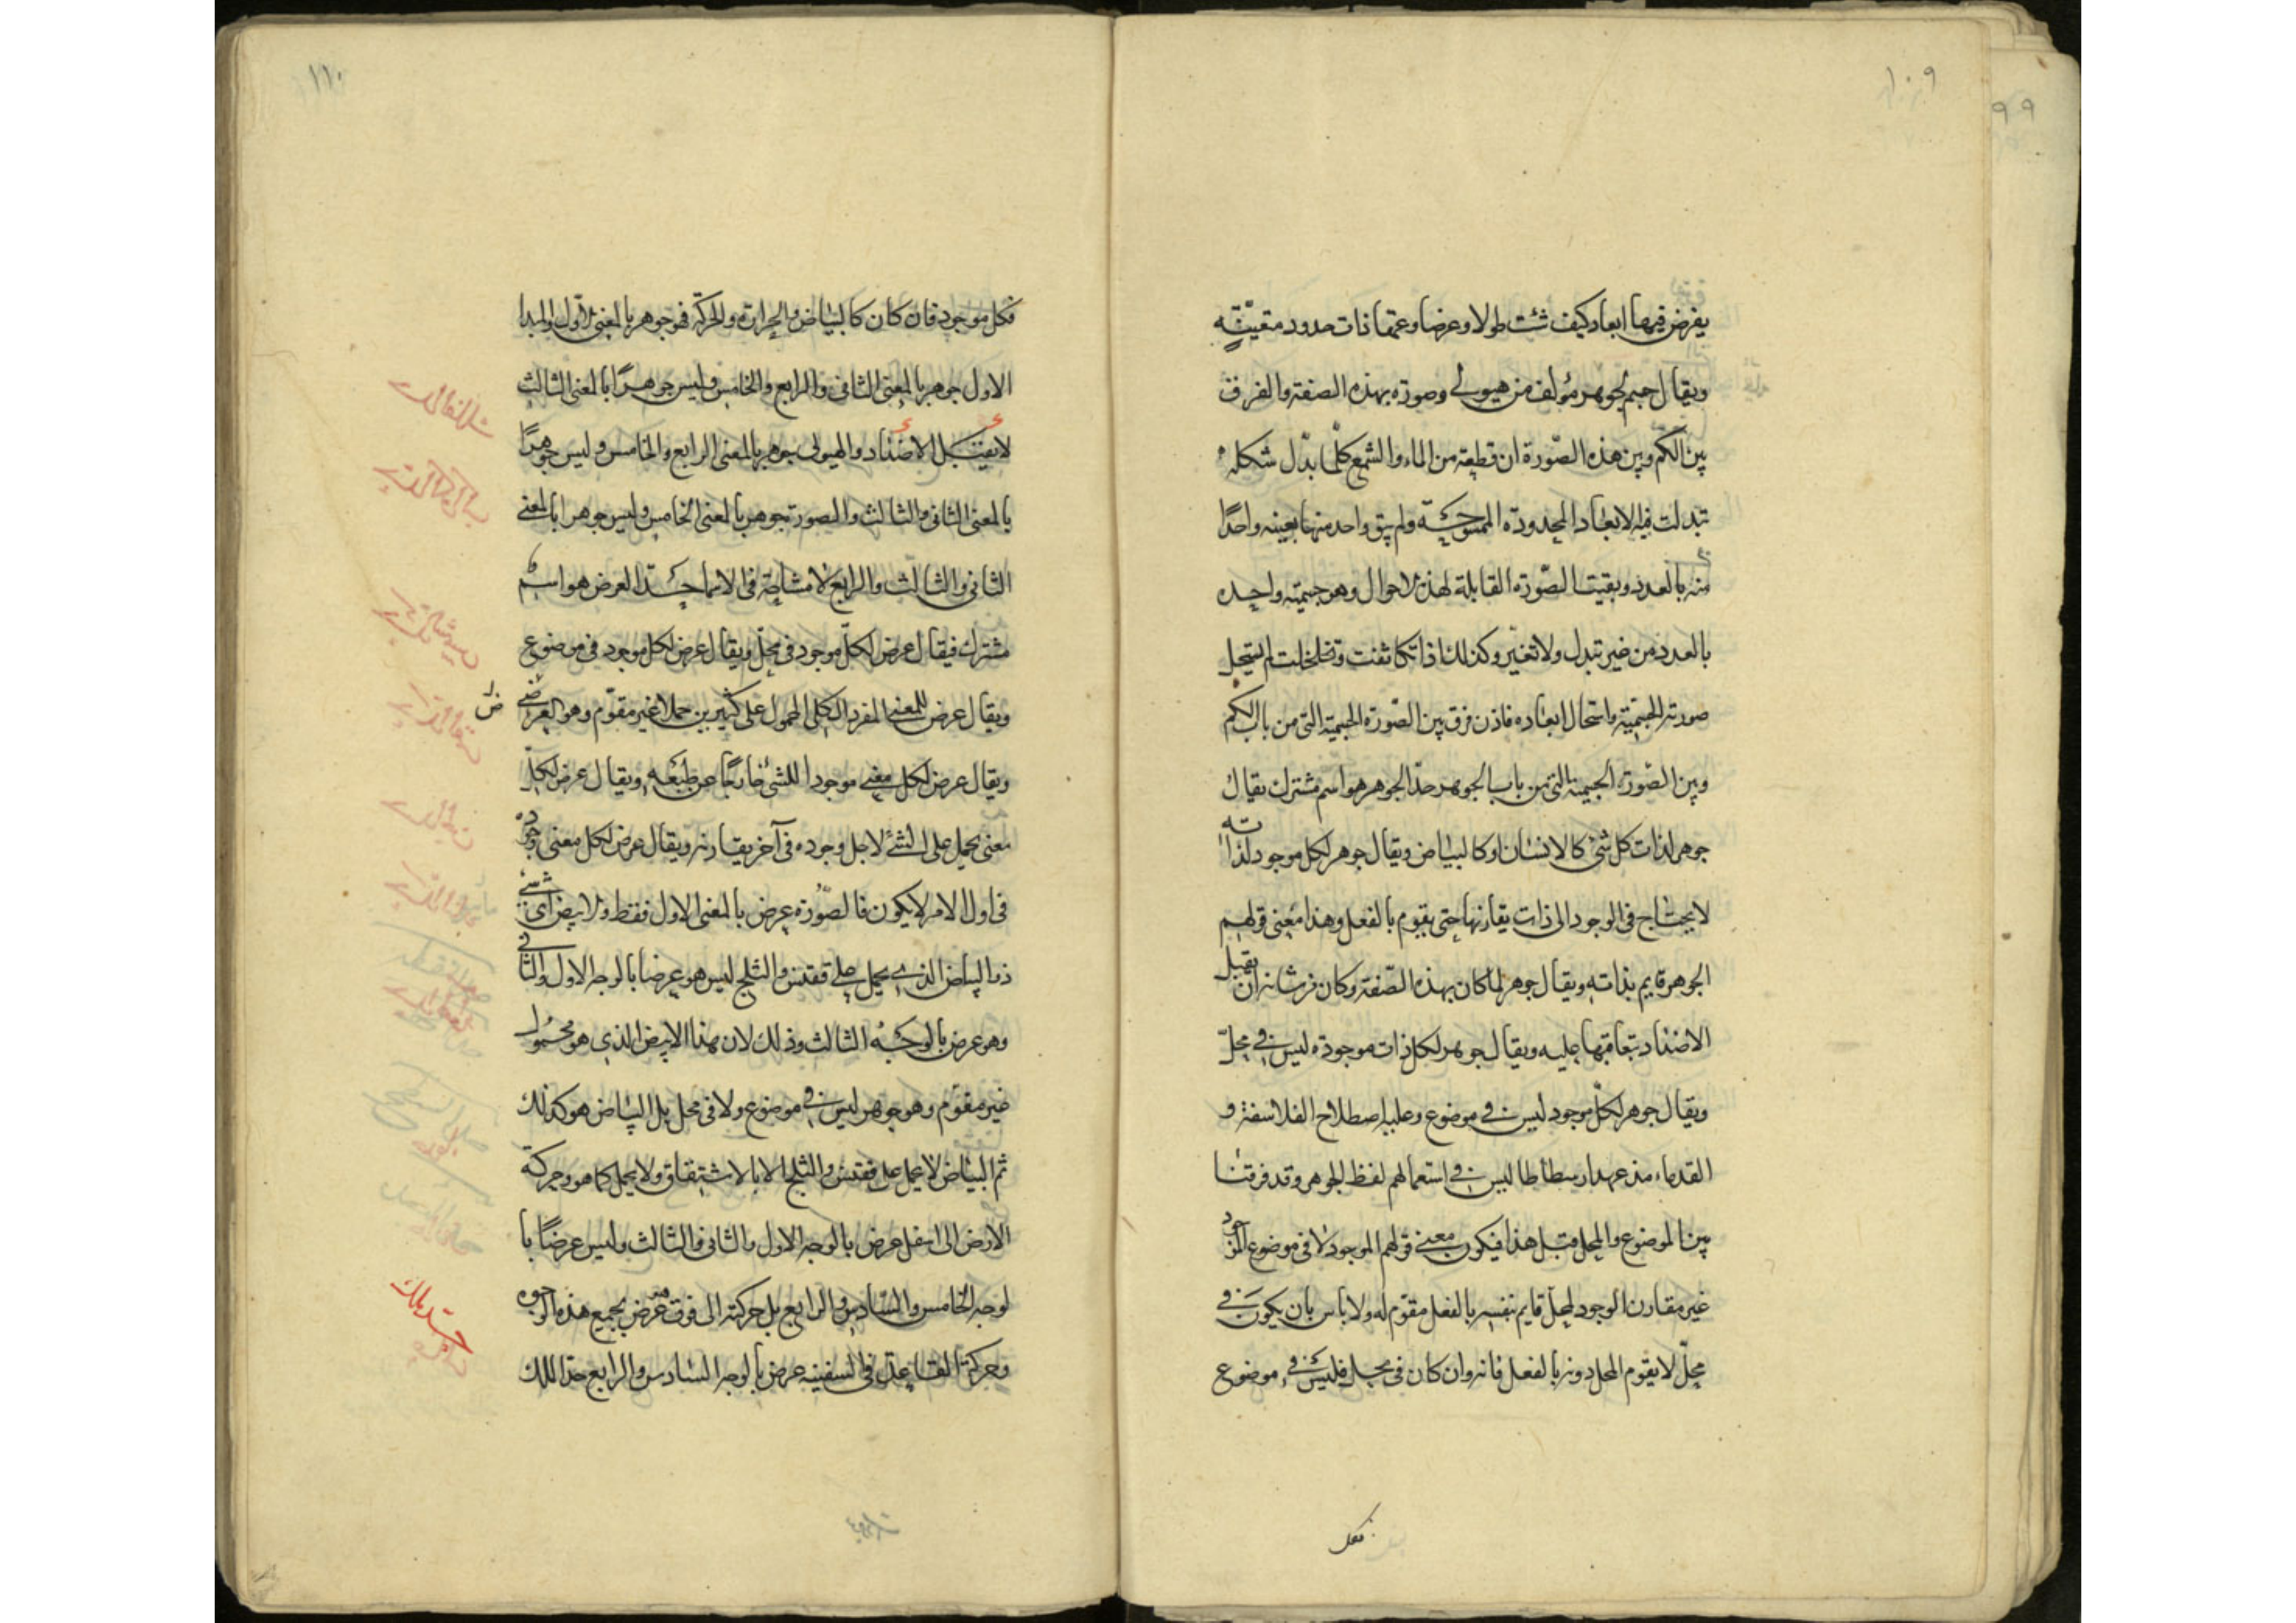 ١٠٩
٩٩
يفرض فيها ابعاد كيف شئت طولا وعرضا وعمقا ذات حدود متعيّنة
ويقال جسم لجوهر مؤلف من هيولى وصورة بهذه الصفة والفرق
بين الكم وبين هذه الصّورة ان قطعة من الماء والشمع كلّما بدّل شكله
تبدلت فيه الابعاد المحدودة الممسوحة ولم يبق واحد منها بعينه واحدًا
منه بالعدد وبقيت الصّورة القابلة لهذه الاحوال وهو جسمية واحدة
بالعدد من غير تبدل ولا تغيّر وكذلك اذا تكاثفت وتخلخلت لم تستحل
صورته الجسميّة واستحال ابعاده فاذن فرق بين الصّورة الجسمية التى من باب الكم
وبين الصّورة الجسمية التى من باب الجوهر حدّ الجوهر هو اسم مشترك يقال
جوهر لذات كل شئ كالانسان او كالبياض ويقال جوهر لكل موجود لذاته
لا يحتاج فى الوجود الى ذات يقارنها حتى يقوم بالفعل وهذا معنى قولهم
الجوهر قايم بذاته ويقال جوهر لما كان بهذه الصّفة وكان من شانه ان يقبل
الاضداد بتعاقبها عليه ويقال جوهر لكل ذات موجودة ليس فى محلّ
ويقال جوهر لكلّ موجود ليس فى موضوع وعليه اصطلاح الفلاسفة و
القدماء منذ عهد ارسطاطاليس فى استعمالهم لفظ الجوهر وقد فرقنا
بين الموضوع والمحل قبل هذا فيكون معنى قولهم الموجود لا فى موضوع الموجود
غير مقارن الوجود لمحلّ قايم بنفسه بالفعل مقوّم له ولا باس بان يكون فى
محلّ لا يقوم المحل دونه بالفعل فانه وان كان فى محل فليس فى موضوع
فكل
١١٠
فكل موجود فان كان كالبياض والحرارة والحركة فهو جوهر بالمعنى الاول والمبدا
الاول جوهر بالمعنى الثانى والرابع والخامس وليس جوهرًا بالمعنى الثالث
لا يقبل الاضداد والهيولى جوهر بالمعنى الرابع والخامس وليس جوهرًا
بالمعنى الثانى والثالث والصورة جوهر بالمعنى الخامس وليس جوهرا بالمعنى
الثانى والثالث والرابع لا مشاحة فى الاسما حدّ العرض هو اسم
مشترك فيقال عرض لكلّ موجود فى محلّ ويقال عرض لكل موجود فى موضوع
ويقال عرض للمعنى المفرد الكلى المحمول على كثيرين حملا غير مقوّم وهو العرضى
ويقال عرض لكل معنى موجود للشئ خارجًا عن طبعه ويقال عرض لكلّ
معنى يحمل على الشئ لاجل وجوده فى آخر يقارنه ويقال عرض لكل معنى وجوده
فى اول الامر لا يكون فالصّورة عرض بالمعنى الاول فقط والابيض اى شئ
ذو البياض الذى يحمل على ققنس والثلج ليس هو عرضا بالوجه الاول والثانى
وهو عرض بالوجه الثالث وذلك لان هذا الابيض الذى هو محمول
غير مقوّم وهو جوهر ليس فى موضوع ولا فى محل بل البياض هو كذلك
ثم البياض لا يحمل على ققنس والثلج الا بالاشتقاق ولا يحمل كما هو وحركة
الارض الى اسفل عرض بالوجه الاول والثانى والثالث وليس عرضًا با
لوجه الخامس والسّادس والرابع بل حركته الى فوق عرض بجميع هذه الوجوه
وحركة القاعد فى السفينة عرض بالوجه السّادس والرابع حد الملك
حدّ ملك